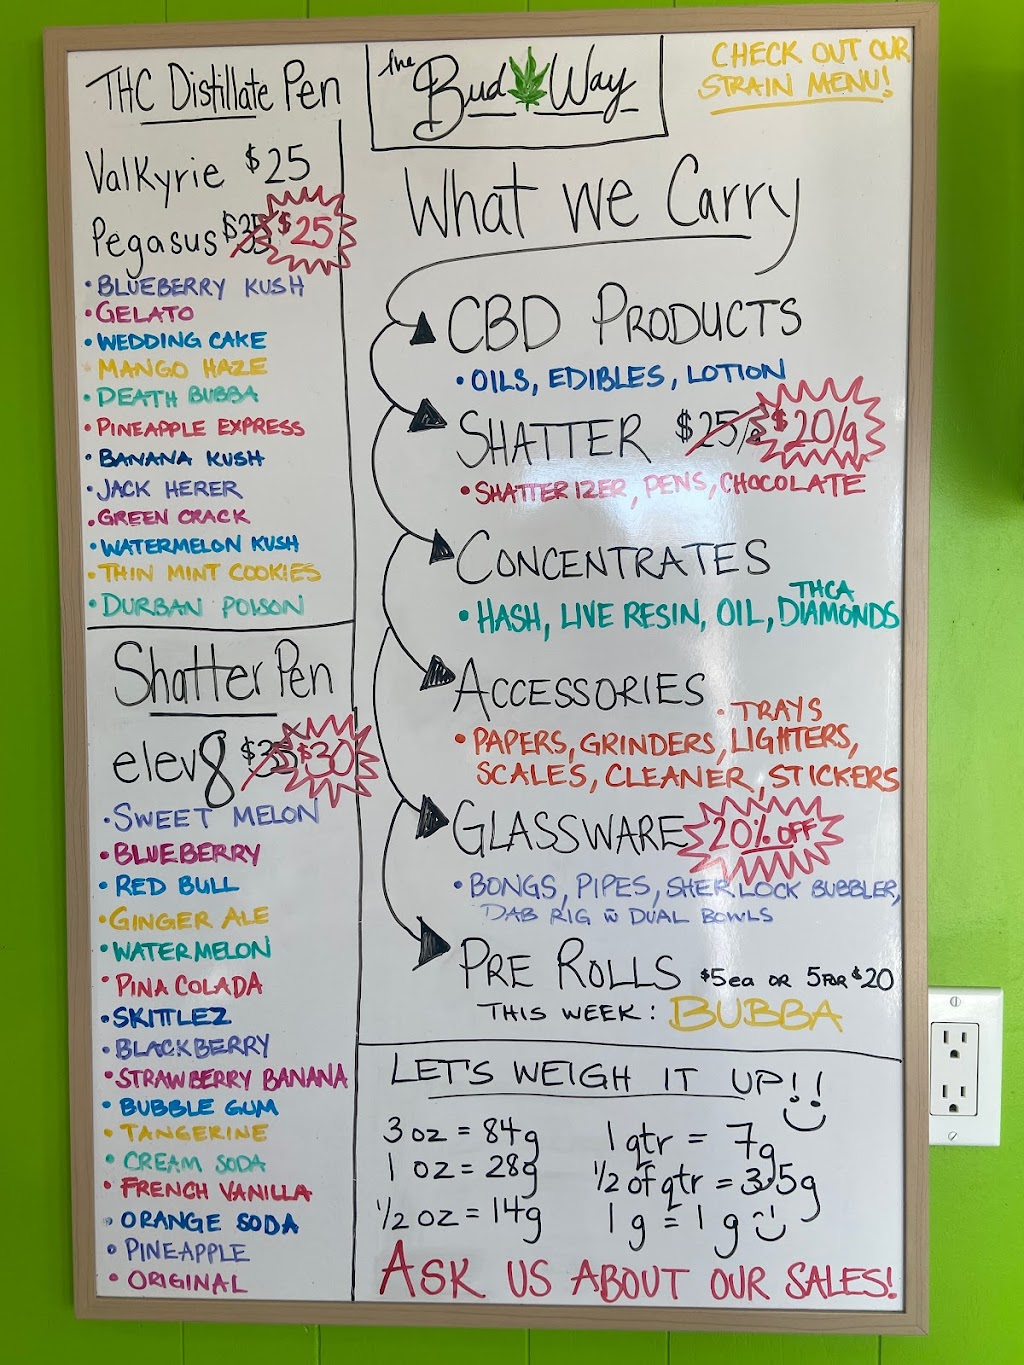 THC Distillate Pen
Valkyrie $25
Pegasus $35 $25
• BLUEBERRY KUSH
• GELATO
• WEDDING CAKE
• MANGO HAZE
• DEATH BUBBA
• PINEAPPLE EXPRESS
• BANANA KUSH
• JACK HERER
• GREEN CRACK
• WATERMELON KUSH
• THIN MINT COOKIES
• DURBAN POISON
Shatter Pen
elev8 $35 $30
• SWEET MELON
• BLUEBERRY
• RED BULL
• GINGER ALE
• WATERMELON
• PINA COLADA
• SKITTLEZ
• BLACKBERRY
• STRAWBERRY BANANA
• BUBBLE GUM
• TANGERINE
• CREAM SODA
• FRENCH VANILLA
• ORANGE SODA
• PINEAPPLE
• ORIGINAL
the Bud Way
CHECK OUT OUR
STRAIN MENU!
What We Carry
CBD PRODUCTS
• OILS, EDIBLES, LOTION
SHATTER $25/g $20/g
• SHATTERIZER, PENS, CHOCOLATE
CONCENTRATES
THCA
• HASH, LIVE RESIN, OIL, DIAMONDS
ACCESSORIES
• TRAYS
• PAPERS, GRINDERS, LIGHTERS,
SCALES, CLEANER, STICKERS
GLASSWARE 20% OFF
• BONGS, PIPES, SHERLOCK BUBBLER,
DAB RIG w DUAL BOWLS
PRE ROLLS $5ea OR 5 FOR $20
THIS WEEK: BUBBA
LET'S WEIGH IT UP!!
3 oz = 84g
1 oz = 28g
1/2 oz = 14g
1 qtr = 7g
1/2 of qtr = 3.5g
1 g = 1 g
ASK US ABOUT OUR SALES!